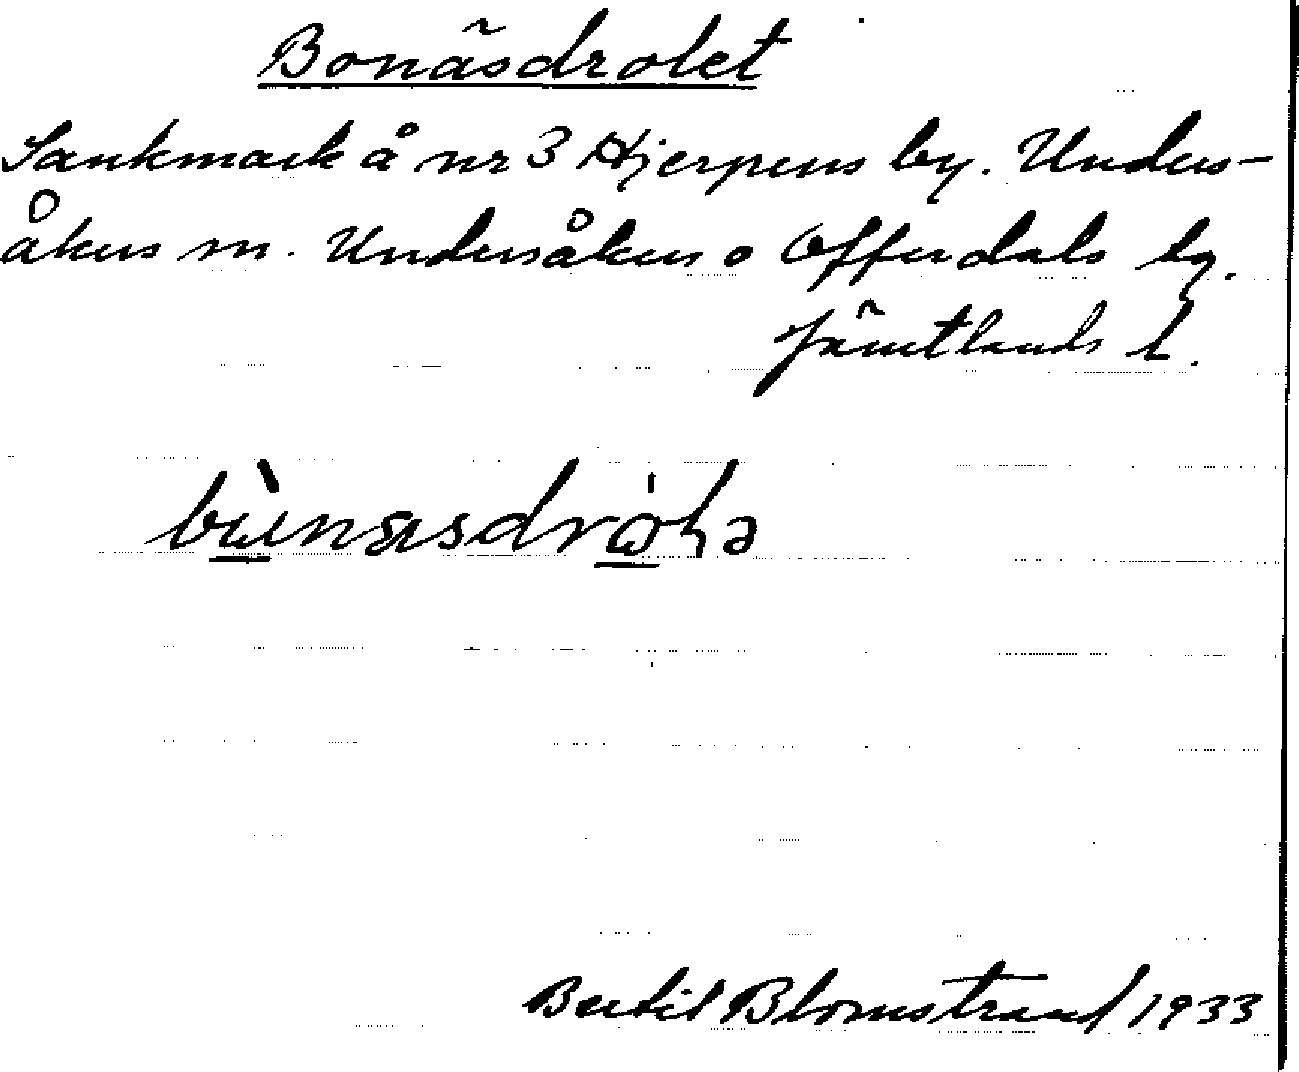 Bonäsdrolet
Sankmark å nr 3 Hjerpens by. Unders-
åkers sn. Undersåkers o Offerdals tg.
Jämtlands l.
Bertil Blomstrand 1933